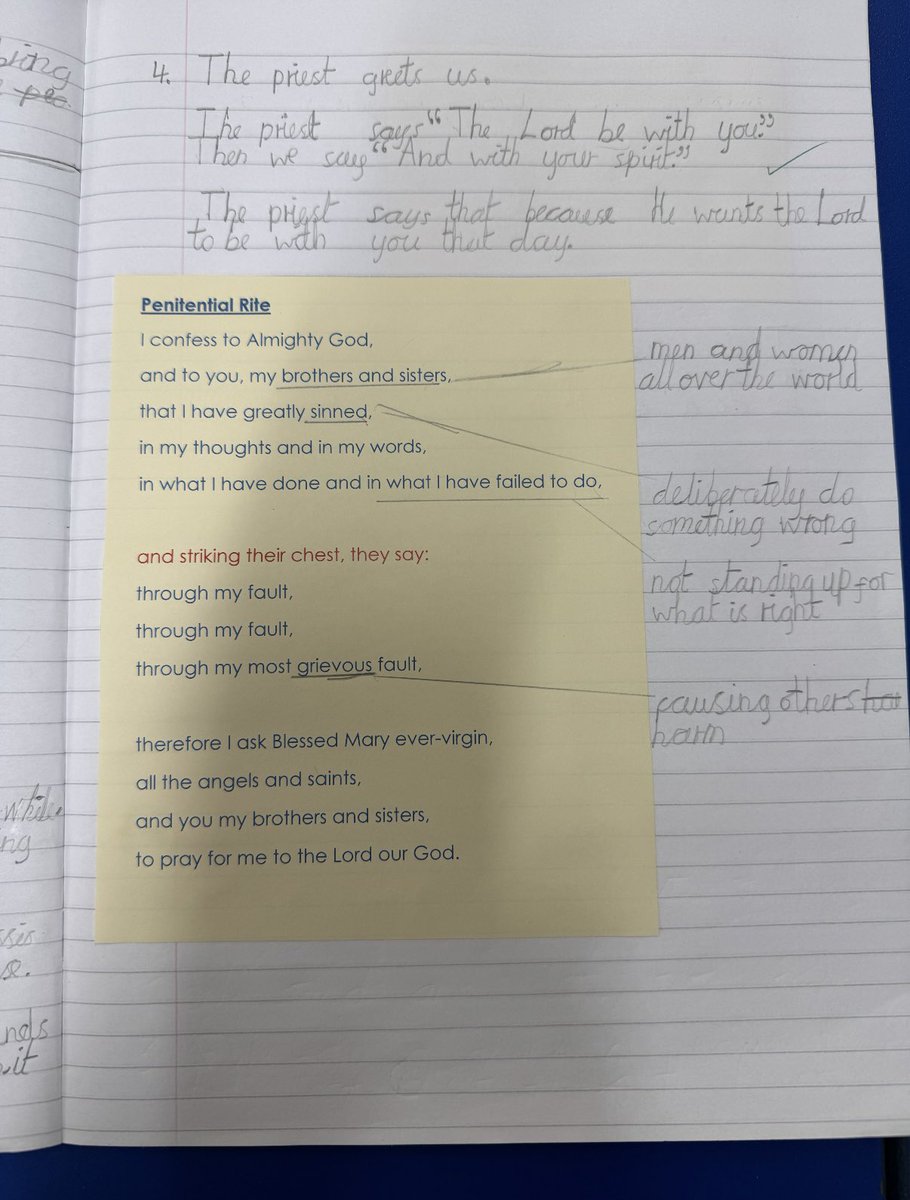 4. The priest greets us.
The priest says “The Lord be with you.”
Then we say “And with your spirit.”
The priest says that because He wants the Lord
to be with you that day.
Penitential Rite
I confess to Almighty God,
and to you, my brothers and sisters,
men and women
all over the world
that I have greatly sinned,
in my thoughts and in my words,
in what I have done and in what I have failed to do,
deliberately do
something wrong
and striking their chest, they say:
not standing up for
what is right
through my fault,
through my fault,
through my most grievous fault,
causing others
harm
therefore I ask Blessed Mary ever-virgin,
all the angels and saints,
and you my brothers and sisters,
to pray for me to the Lord our God.